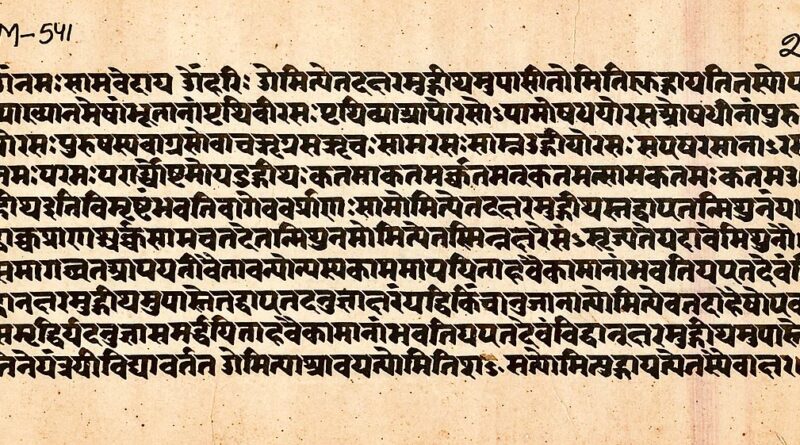 M-541 2
ॐनमःसामवेदाय ॐहरिः ॐमित्येतदक्षरमुद्गीथमुपासीतोमितिह्युद्गायतितस्योप
व्याख्यानमेषांभूतानांपृथिवीरसःपृथिव्याआपोरसोऽपामोषधयोरसओषधीनांपुरु
षोरसःपुरुषस्यवाग्रसोवाचऋग्रसऋचःसामरसःसाम्नउद्गीथोरसःसएषरसानाऽरस
तमःपरमःपरार्द्ध्योष्टमोयउद्गीथःकतमाकतमर्क्कतमत्कतमत्सामकतमःकतमउ
द्गीथइतिविमृष्टंभवतिवागेवर्क्प्राणःसामोमित्येतदक्षरमुद्गीथस्तद्वाएतन्मिथुनंय
द्वाक्चप्राणश्चर्क्चसामचतदेतन्मिथुनमोमित्येतस्मिन्नक्षरेसंऽसृज्यतेयदावैमिथुनौ
समागच्छतआपयतोवैतावन्योन्यस्यकाममापयिताहवैकामानांभवतियएतदेवंवि
द्वानक्षरमुद्गीथमुपास्तेतद्वाएतदनुज्ञाक्षरंयद्धिकिंचानुजानात्योमित्येवतदाहैषोएव
समृद्धिर्यदनुज्ञासमर्द्धयिताहवैकामानांभवतियएतदेवंविद्वानक्षरमुद्गीथमुपास्ते
तेनेयंत्रयीविद्यावर्तत ॐमित्याश्रावयत्योमितिशऽसत्योमित्युद्गायत्येतस्यैवाक्षर